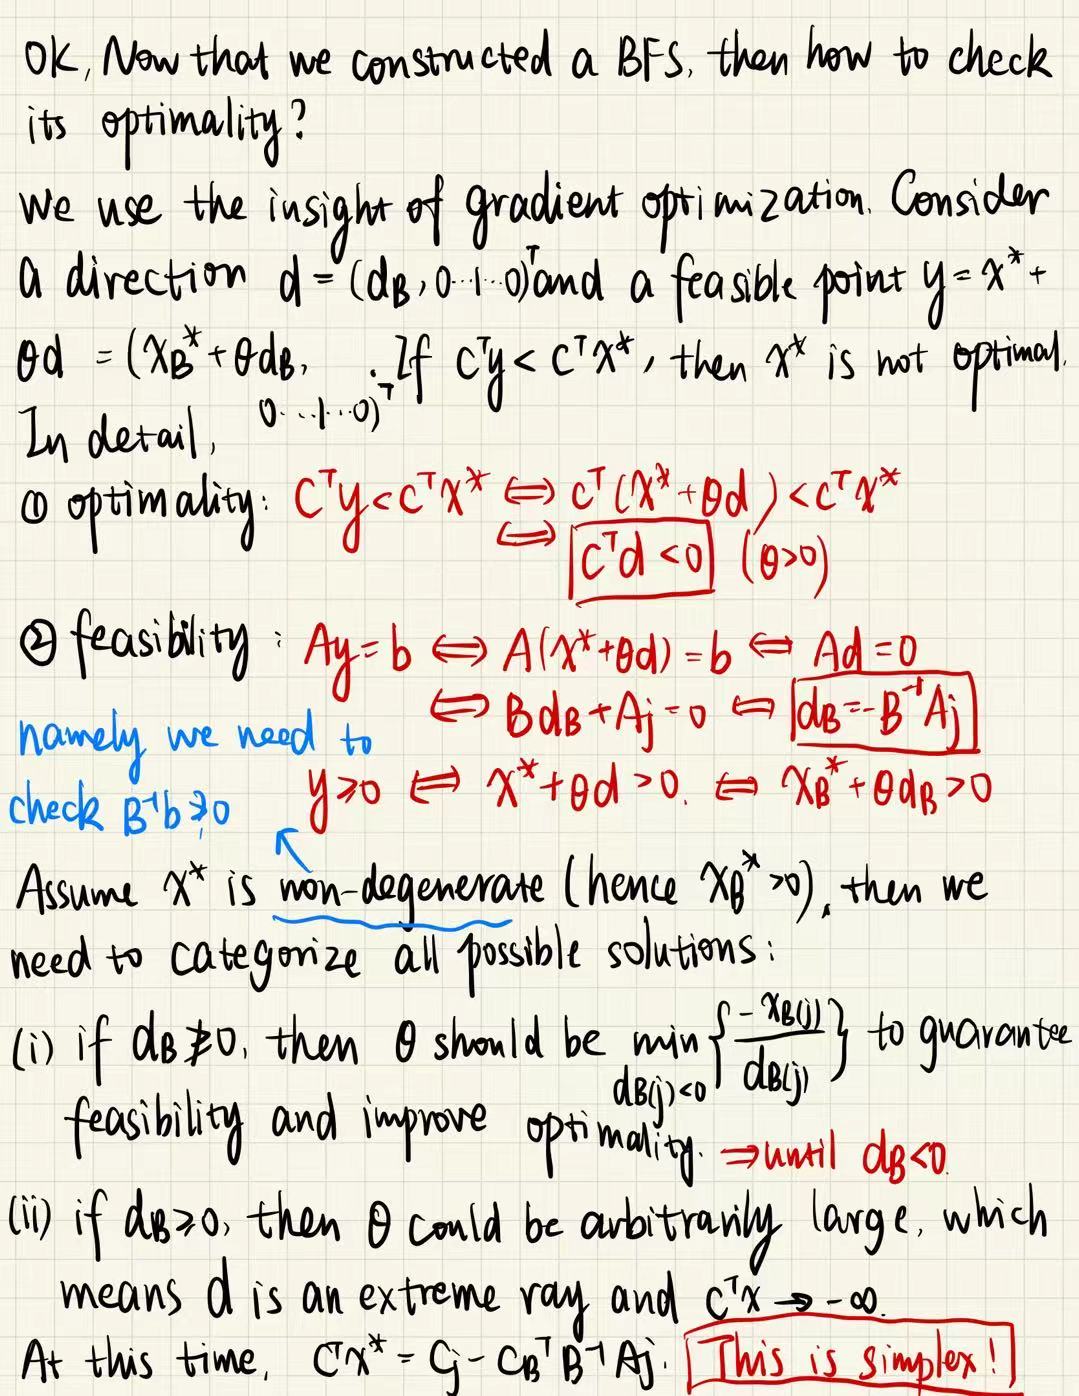 OK, Now that we constructed a BFS, then how to check
its optimality?
We use the insight of gradient optimization. Consider
a direction d = (d_B, 0···1···0)^T and a feasible point y = x* +
θd = (x_B* + θd_B, 0···1···0)^T. If c^T y < c^T x*, then x* is not optimal.
In detail,
① optimality: C^T y < c^T x* ⇔ c^T (x* + θd) < c^T x*
⇔ c^T d < 0 (θ>0)
② feasibility: Ay = b ⇔ A(x* + θd) = b ⇔ Ad = 0
⇔ Bd_B + A_j = 0 ⇔ d_B = -B^-1 A_j
namely we need to
check B^-1 b ≥ 0
y ≥ 0 ⇔ x* + θd > 0. ⇔ x_B* + θd_B > 0
Assume x* is non-degenerate (hence x_B* > 0), then we
need to categorize all possible solutions:
(i) if d_B ≱ 0, then θ should be min_{d_B(j)<0} {-x_B(j) / d_B(j)} to guarantee
feasibility and improve optimality. ⇒ until d_B < 0.
(ii) if d_B ≥ 0, then θ could be arbitrarily large, which
means d is an extreme ray and c^T x → -∞.
At this time, C^T x* = C_j - C_B^T B^-1 A_j. This is simplex!